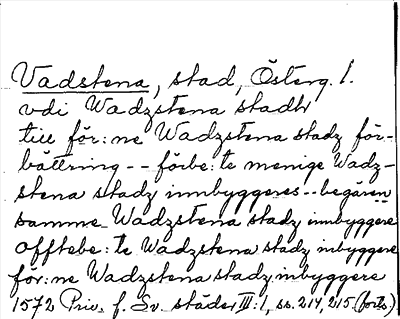 Vadstena, stad, Österg. l.
vdi Wadzstena stadh
till för:ne Wadzstena stadz för-
bättring -- förbe:te menige Wadz-
stena stadz innbyggeres -- begären
samme Wadzstena stadz innbyggere
offtebe:te Wadzstena stadz inbyggere
för:ne Wadzstena stadz inbyggere
1572 Priv. f. Sv. städer III:1, ss. 214, 215 (forts.)